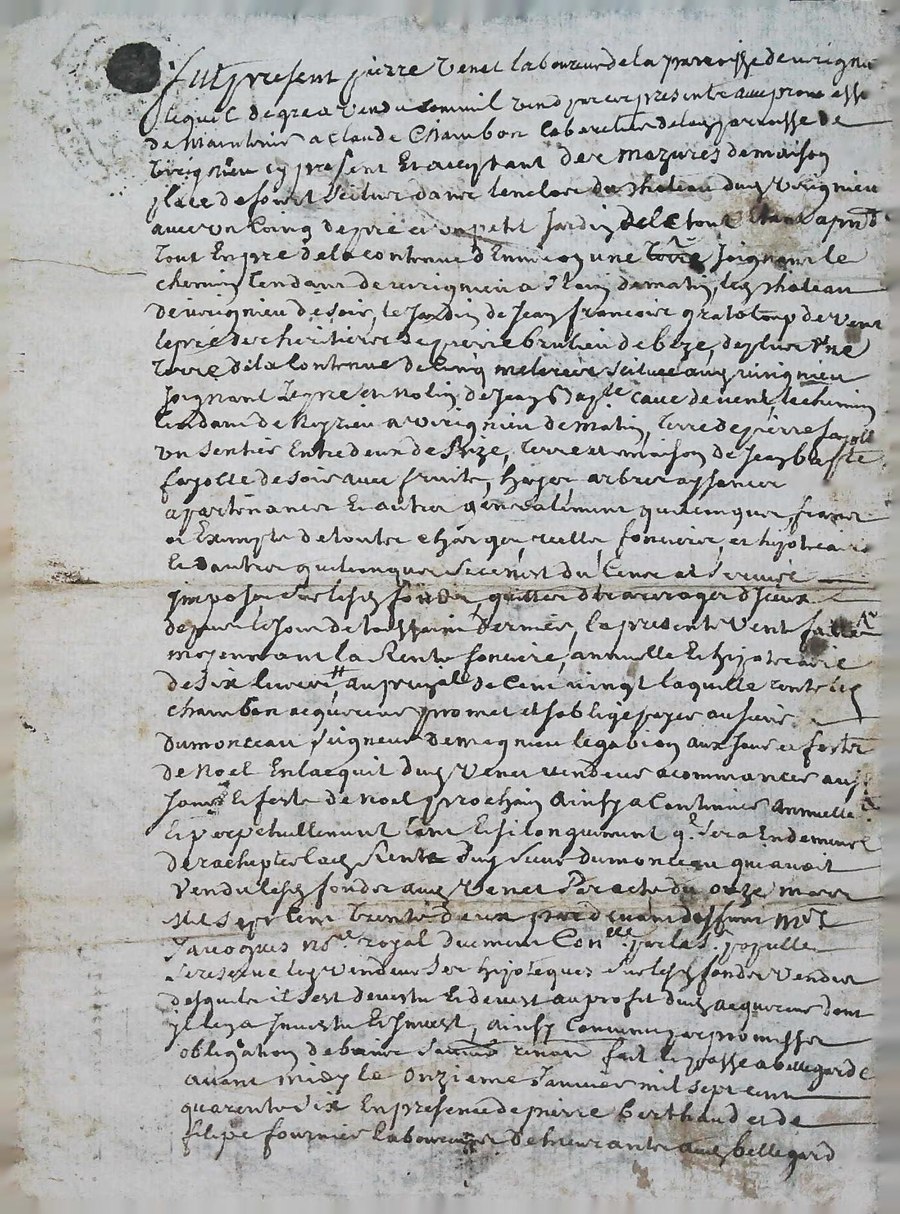 Fut present pierre Venet laboureur de la parroisse de virignieu
lequel de gre a vendu comm'il vend par ces presente avec promesse
de maintenir a Claude Chambon cabaretier de la parroisse de
virignieu cy present et acceptant des mazures de maison
place de four et scituee dans l'enclos du chateau dud virignieu
avec un coing de pre et un petit Jardin de le tout
tout en pre de la contenue d'environ une Joignant le
chemin tendant de virignieu a de matin, led chateau
de virignieu de soir, le Jardin de Jean francois gratoloup de vent
le pré des heritiers de pierre brulieu de bize, de plus une
terre de la contenue de cinq scituee aud viringnieu
Joignant le pre et de Jean Bap.te cave de vent, le chemin
tendant de a virignieu de matin, terre de pierre fayolle
un sentier entre deux de Bize, terre et maison de Jean baptte
fayolle de soir avec fruits, hayes arbres aysances
apartenances et autres generalement quelconques francs
et Exempts de toutes charges, foncieres, et hipotecaires
et d'autres quelconques si ce n'est du Cens et servis
imposes sur lesd fonds, quittes d'arrerages d'iceux
depuis le Jour de toussaint dernier, la presente Vente faitte
moyennant la Rente fonciere, annuelle et hipotecaire
de six livres, au prinpal de cent vingt laquelle rente led
chambon acquereur promet et s'oblige payer au sieur
dumonceau seigneur de magnieu le gabion aux Jour et feste
de Noel En l'acquit dud Venet vendeur a commancer aux
Jour et feste de Noel prochain ainsy a Continuer annuelle
et perpetuellement tant et si longuement
de rachepter lad Rente dud sieur dumonceau qui avoit
vendu lesd fonds aud Venet Par acte du onze mars
mil sept cent trente deux par devant deffunt
Jacoques no.re royal
se reserve led vendeur ses hipoteques sur lesd fonds vendus
desquels il s'est devestu et devest au profit dud acquereur dont
il l'en a Investu et Invest, ainsy Convenu par promesses
obligation de biens fait et passé a bellegarde
avant midy le onzieme Janvier mil sept cent
quarente six En presence de pierre berthaud et de
filipe fournier laboureurs demeurants aud bellegard